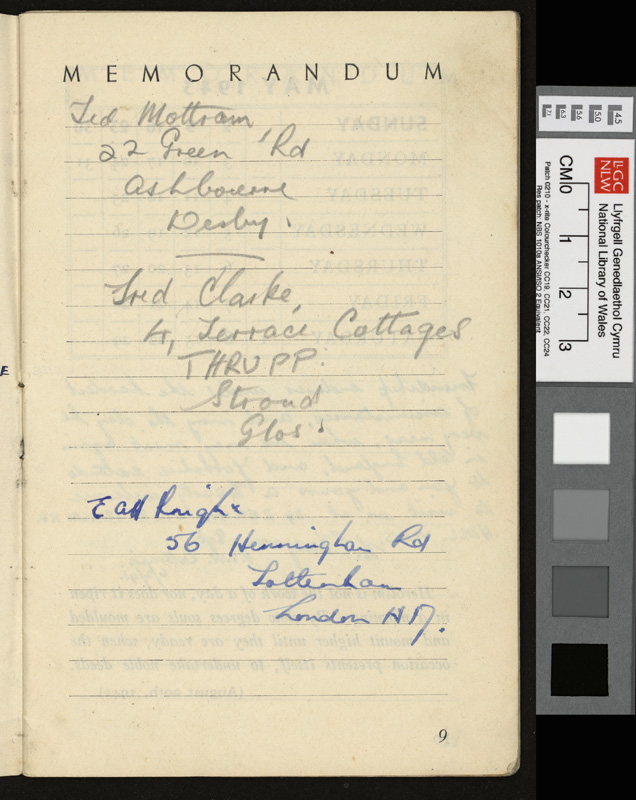 MEMORANDUM
Ted Mottram
22 Green Rd
Ashbourne
Derby.
Fred Clarke,
4, Terrace Cottages
THRUPP.
Stroud
Glos.
Knight
56 Henningham Rd
Tottenham
London N17.
9
E
LLGC
NLW
Llyfrgell Genedlaethol Cymru
National Library of Wales
CM 0 1 2 3
Patch 0210 - x-rite Colourchecker CC19, CC21, CC22, CC24
Res patch: NBS 1010a ANSI/ISO 2 Equivalent
4.5
5.0
5.6
6.3
7.1